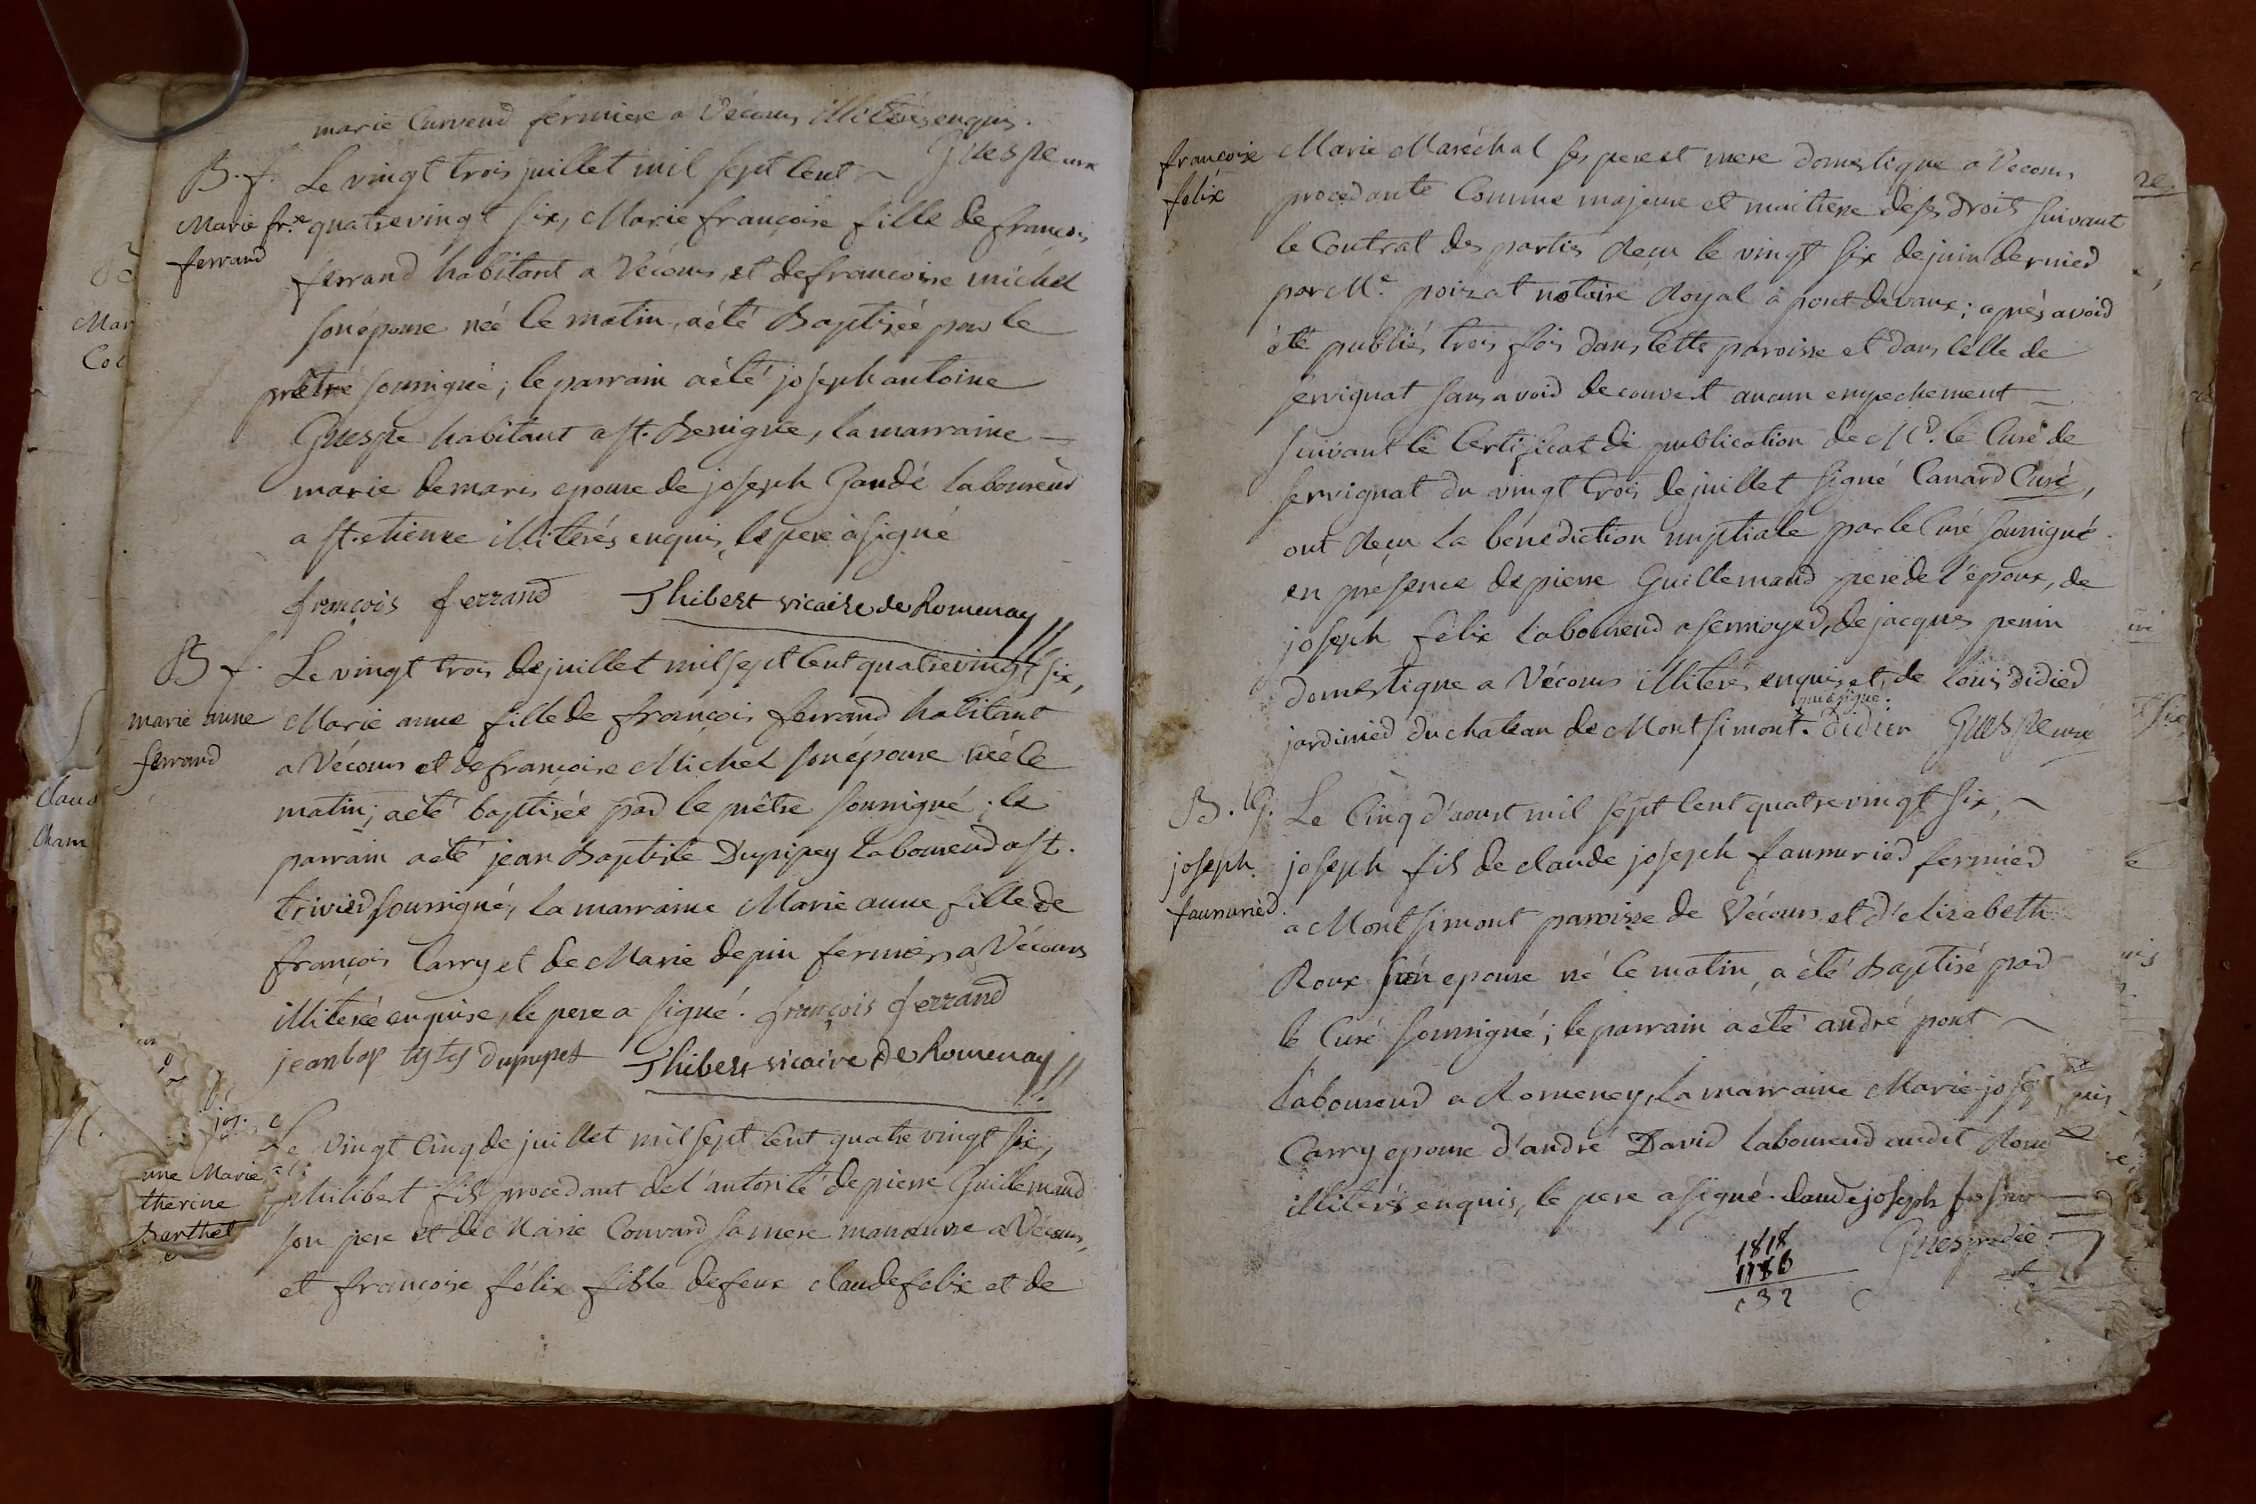 marie Curvend fermiere a Vécours illiterés enquis.
Guespe curé
B. f. Le vingt trois juillet mil sept Cent
Marie fr.se quatrevingt six, Marie françoise fille de françois
ferrand
ferrand habitant a Vécours, et de francoise michel
son épouse née le matin, a été Baptisée par le
prêtre soussigné; le parrain a été joseph antoine
Guespe habitant a st. Benigne, la marraine
marie demaris epouse de joseph Gaudé laboureur
a st. etienne illiterés enquis, le pere à signé
françois ferrand Thibert vicaire de Romenay
B f. Le vingt trois de juillet mil sept Cent quatrevingt six,
marie anne Marie anne fille de françois ferrand habitant
ferrand a Vécours et de françoise Michel son épouse née le
matin; a été baptisée par le prêtre soussigné; le
parrain a été jean Baptiste Dupipey laboureur a st.
trivier soussigné, la marraine Marie anne fille de
françois Carry et de Marie depin fermiers a Vécours
illiterée enquise, le pere a signé. françois ferrand
jean bap Thibert vicaire de Romenay
Le vingt Cinq de juillet mil sept Cent quatre vingt six,
philibert fils procedant de l'autorité de pierre Guillemaud
son pere et de Marie Couvard sa mere manœuvre a Vécours,
et françoise félix fille de feux claude felix et de
une Marie
therine
Barthet
Mar
Col
Claud
Cham
françoise Marie Maréchal ses pere et mere domestique a Vecours
felix procedante Comme majeure et maitresse de ses droits suivant
le Contrat des parties Reçu le vingt six de juin dernier
par Me. poizat notaire Royal à pont devaux; après avoir
été publiés trois fois dans cette paroisse et dans celle de
servignat sans avoir decouvert aucun empechement
suivant le Certificat de publication de Mr. le Curé de
servignat du vingt trois de juillet signé Canard Curé,
ont Reçu la bénédiction nuptiale par le Curé soussigné
en présence de pierre Guillemaud pere de l'époux, de
joseph félix laboureur a sermoyer, de jacques penin
domestique a Vécours illiterés enquis, et de Loüis didier
qui a signé.
jardinier du chateau de Montsimont. didier Guespe curé
B. G. Le Cinq d'aoust mil sept Cent quatrevingt six,
joseph joseph fils de claude joseph faussurier fermier
faussurier. a Montsimont paroisse de Vécours et d'elizabeth
Roux son epouse né le matin, a été Baptisé par
le Curé soussigné; le parrain a été andré pont
laboureur a Romeney, la marraine Marie jose
Carry epouse d'andré David laboureur audit Rom
illiterés enquis, le pere a signé. claude joseph
Guespe
1818
1786
032